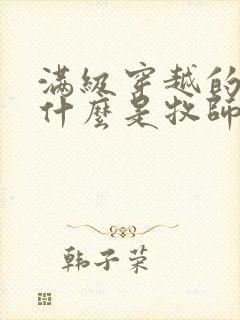 滿級穿越的
什麼是牧師
韩子荣